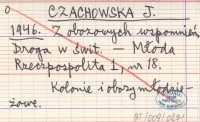 0
CZACHOWSKA J.
1946. Z obozowych wspomnień.
Droga w świt. — Młoda
Rzeczpospolita 1, nr 18.
Kolonie i obozy młodzie-
żowe.
AT/009/0291